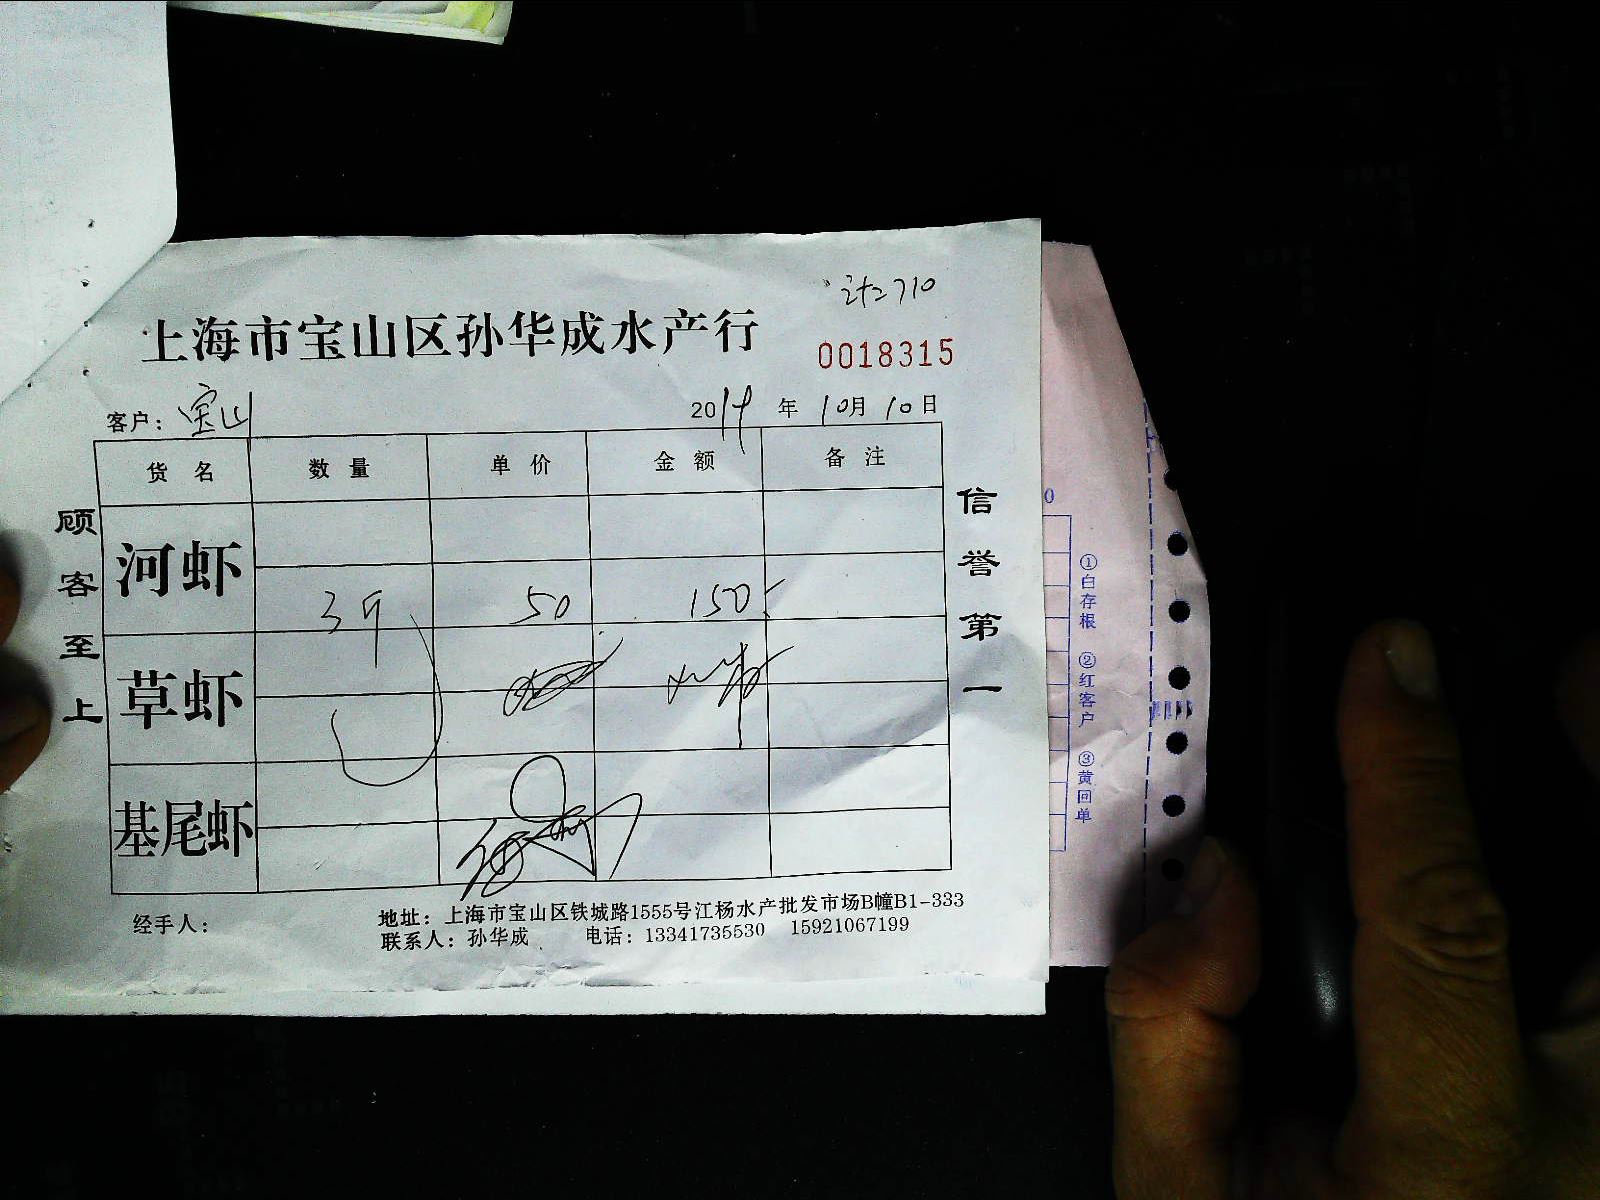 上海市宝山区孙华成水产行
0018315
客户：宝山
2014年10月10日
货名 数量 单价 金额 备注
河虾 3斤 50 150
草虾
基尾虾
顾客至上
信誉第一
经手人：
地址：上海市宝山区铁城路1555号江杨水产批发市场B幢B1-333
联系人：孙华成 电话：13341735530 15921067199
0
①白存根 ②红客户 ③黄回单